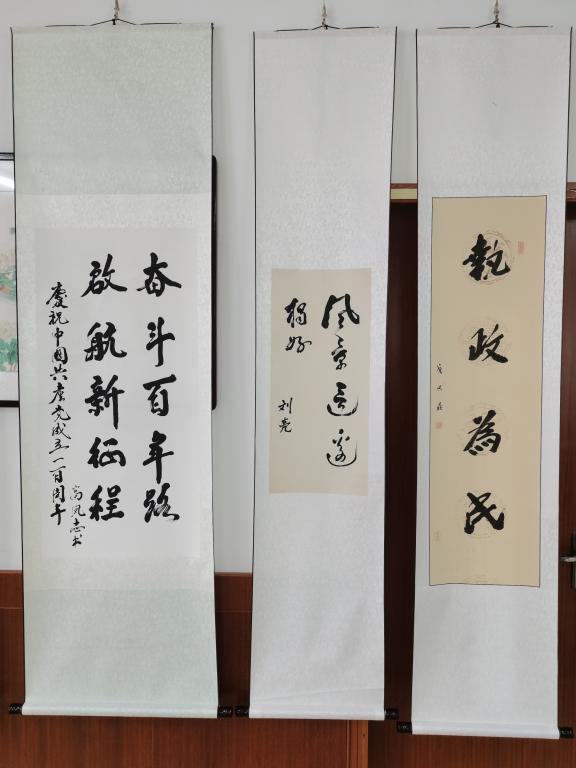 奋斗百年路
啟航新征程
慶祝中国共产党成立一百周年
高风志书
风景这边
獨好
刘亮
執政為民